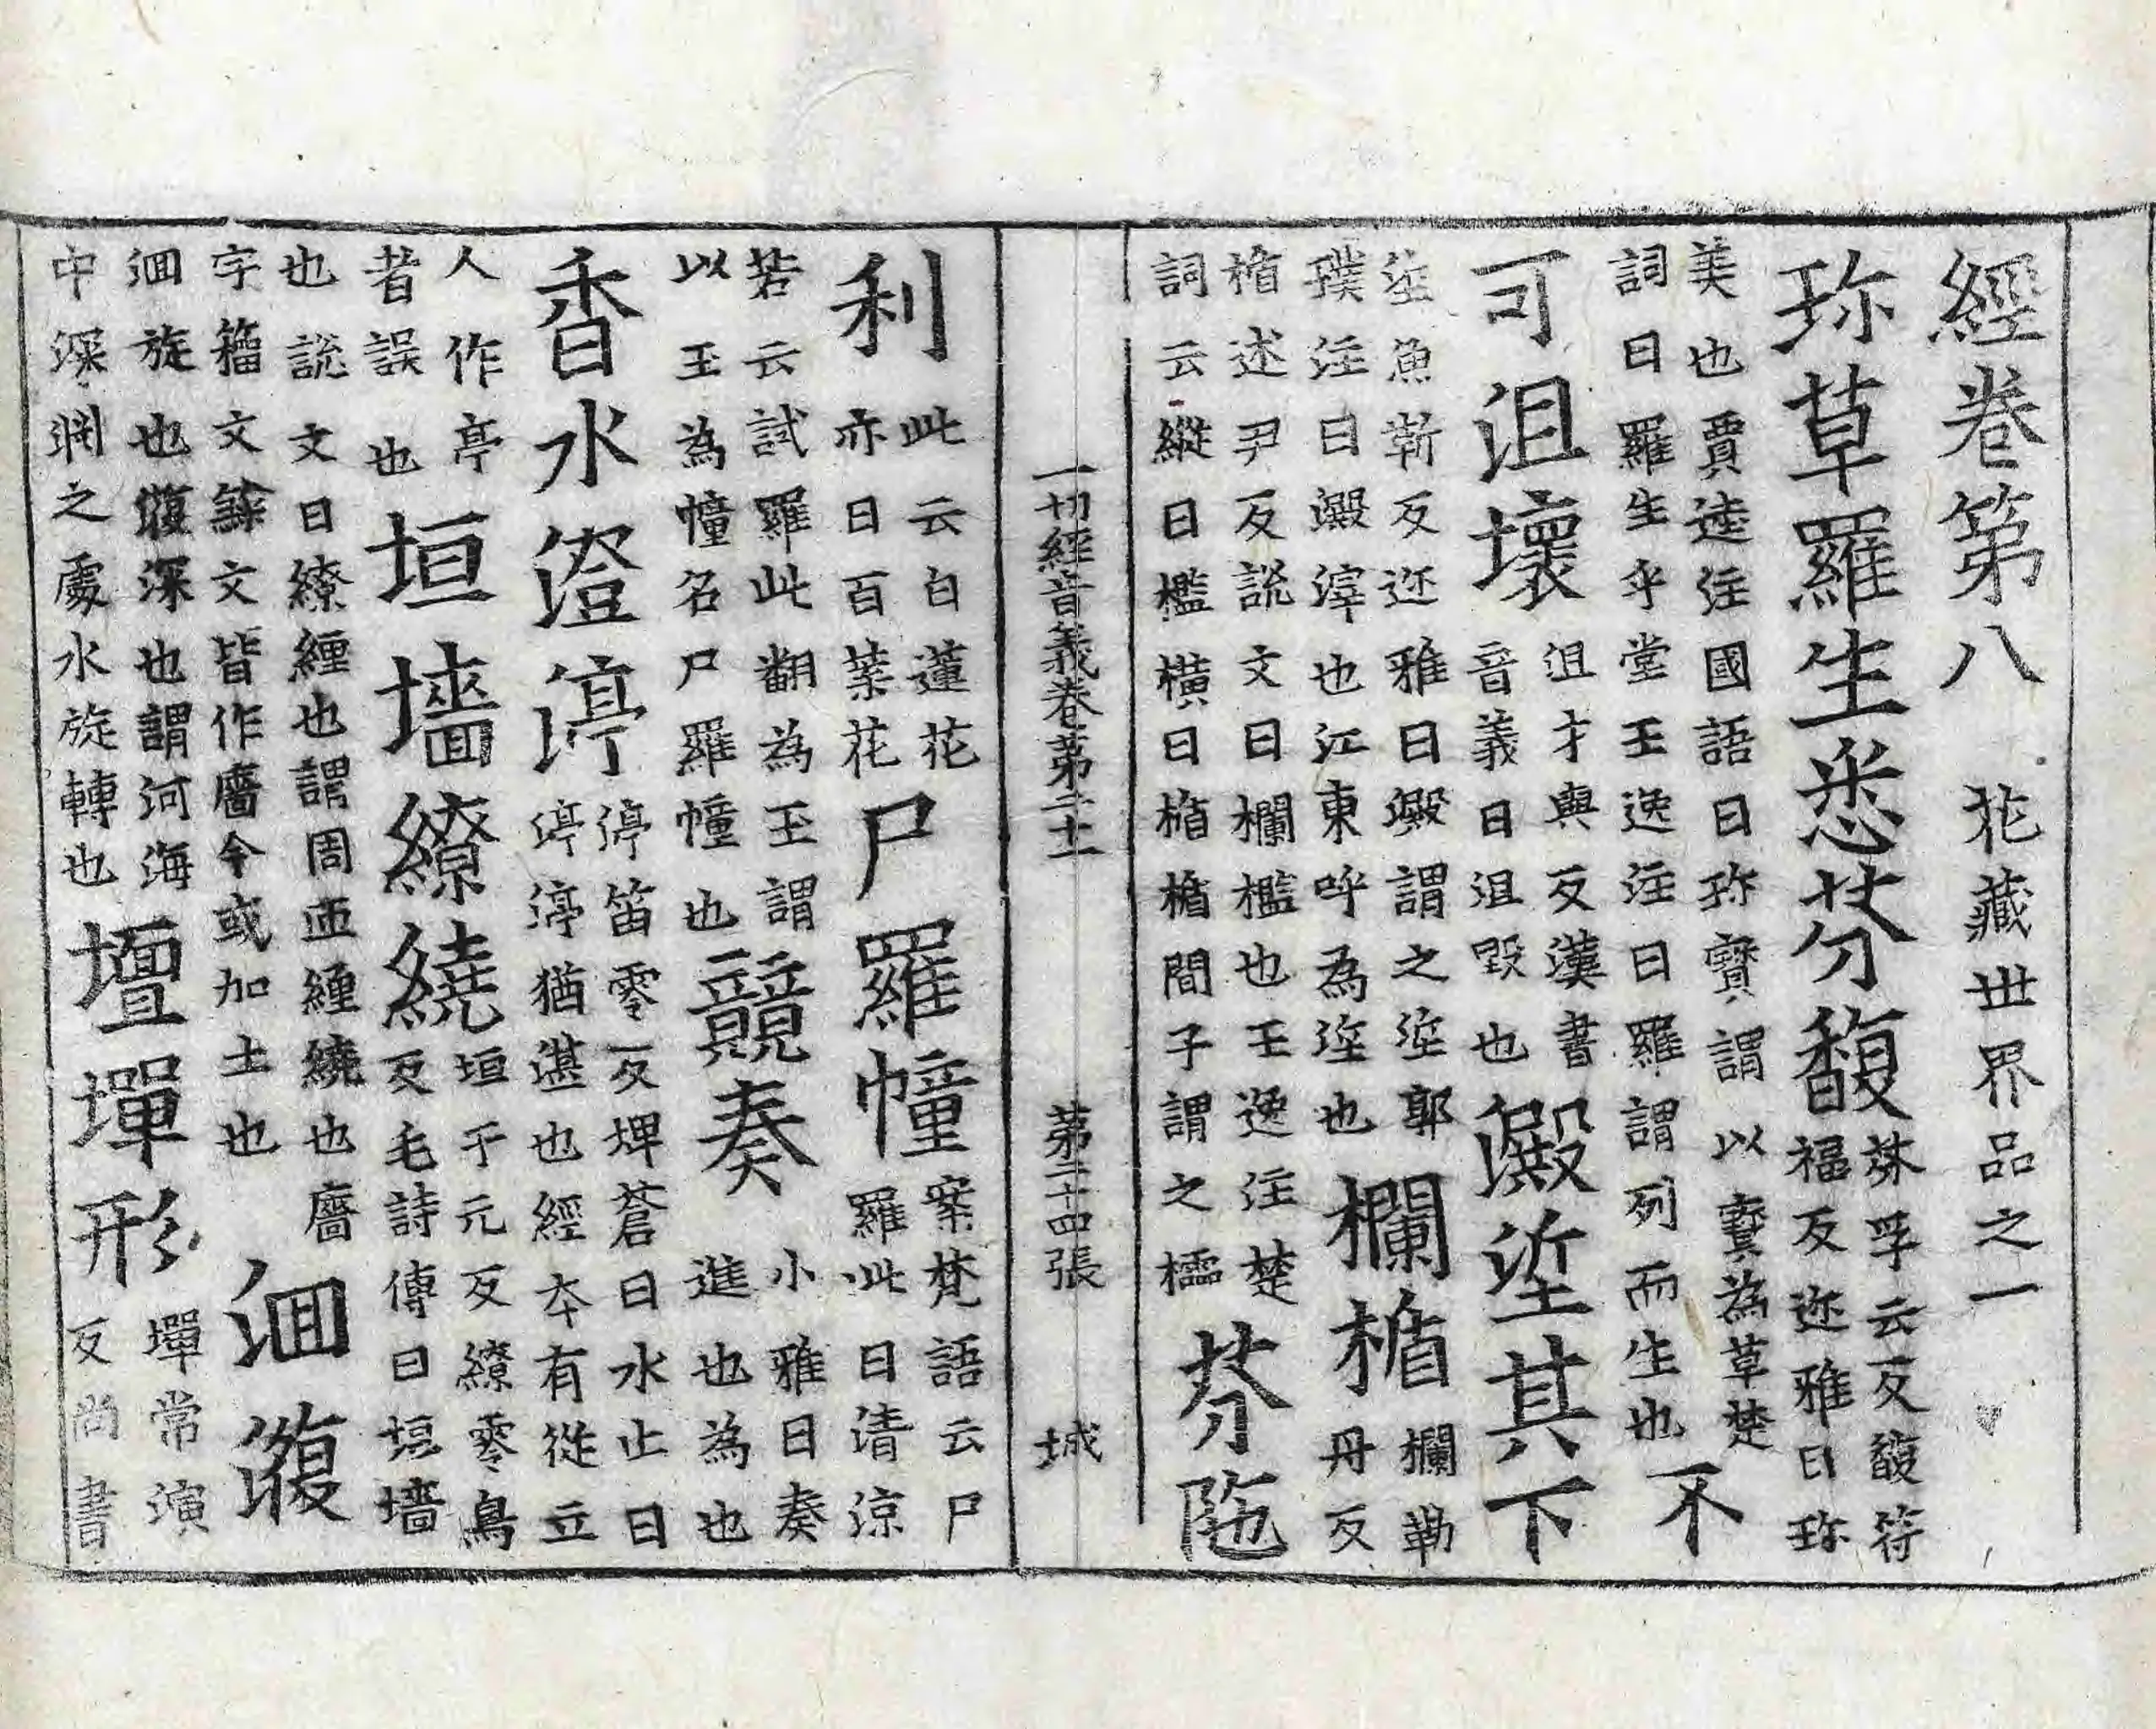 經卷第八 花藏世界品之一
珎草羅生悉芬馥 芬孚云反馥符福反迩雅曰珎
美也賈逵注國語曰珎寶謂以寶為草楚詞曰羅生乎堂王逸注曰羅謂列而生也 不
可沮壞 沮才與反漢書音義曰沮毀也 澱垽其下
垽魚靳反迩雅曰澱謂之垽郭璞注曰澱滓也江東呼為垽也 欄楯 欄勒丹反
楯述尹反說文曰欄檻也王逸注楚詞云縱曰檻橫曰楯楯間子謂之櫺 芬陁
一切經音義卷第二十一 第二十四張 城
利 此云白蓮花亦曰百葉花 尸羅幢 案梵語云尸羅此曰清涼
若云試羅此翻為玉謂以玉為幢名尸羅幢也 競奏 小雅曰奏進也為也
香水澄渟 渟笛零反埤蒼曰水止曰渟渟猶湛也經本有從立
人作亭者誤也 垣墻繚繞 垣于元反繚零鳥反毛詩傳曰垣墻
也說文曰繚纏也謂周匝纏繞也廧字籀文文皆作廧今或加土也 洄澓
洄旋也澓深也謂河海中深渆之處水旋轉也 壇墠形 墠常演反尚書